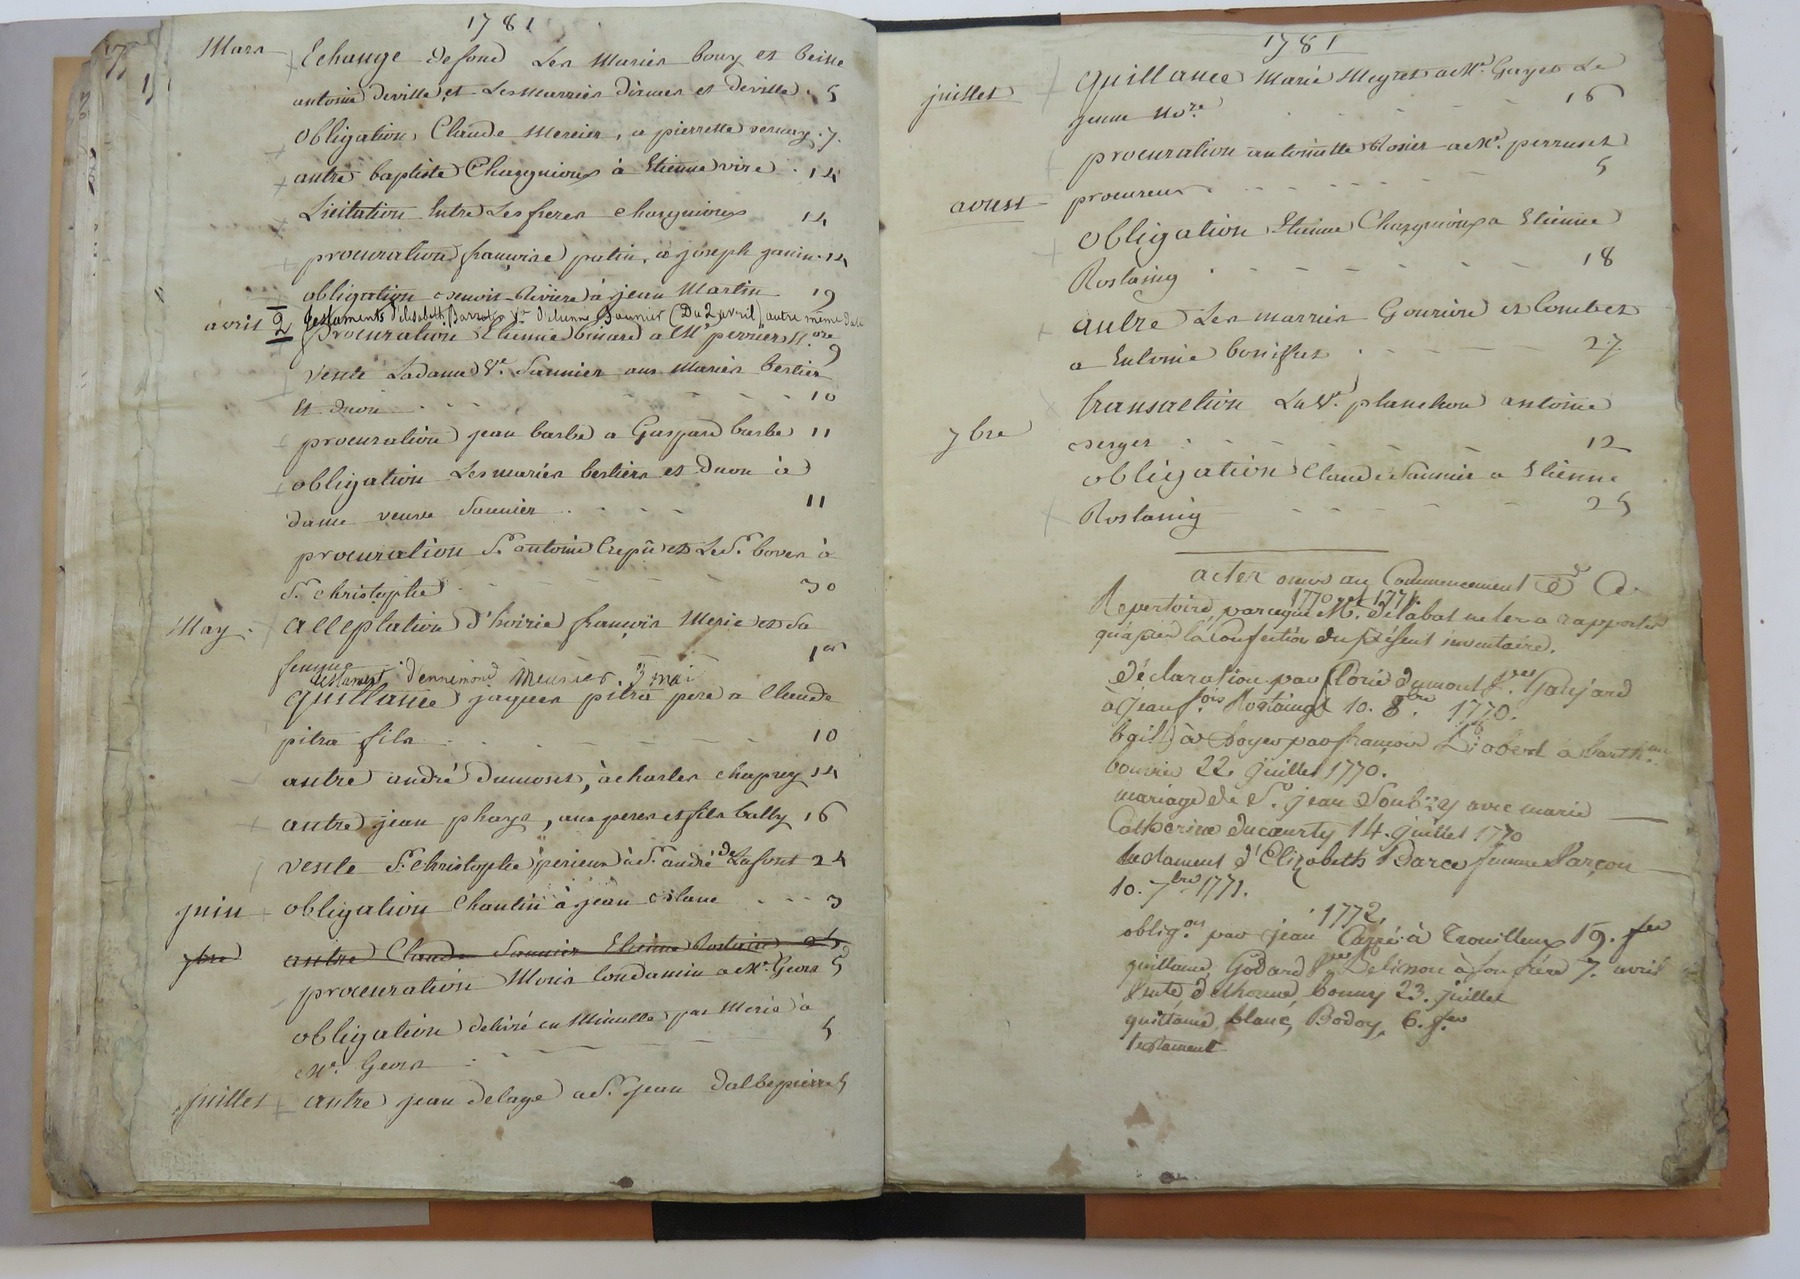 1781
Mars Echange de fond Les Mariés bouy et
antoine deville et Les marriés et deville . 5
obligation Claude Mercier, a pierrette . 7.
autre baptiste Chargnioux à Etienne vire . 14
Licitation Entre Les freres chargnioux 14
procuration françoise patin, a joseph janin . 14
obligation benoit Riviere à jean Martin 19
avril 2 testaments d'elisabeth Ve d'etienne Saunier (Du 2 avril) autre même date
procuration Etienne binard a Me perrier N.re 9
vente Ladame Ve. Saunier aux Mariés bertier
Et duon . . . 10
procuration jean barbe a Gaspard barbe 11
obligation Les mariés bertier et duon à
dame veuve Saunier . . 11
procuration Sr. antoine Crepu et Le Sr. bover à
St. christophe . 30
May . acceptation d'hoirie françois Merie et Sa
femme . 1er
testament d'ennemond Meunier . 3 mai
quittance jaques pitra pere a Claude
pitra fils . 10
autre andré Dumont, à charles chapuy 14
autre jean phaye, aux peres et fils bally 16
vente Sr. christophe perieux à Sr. andré de Lafont 24
juin obligation Chantin à jean blanc . . . 3
7bre autre Claude Saunier Etienne Rostaing 25
procuration Moris Condamin a Me. Geors 5
obligation delivré en Minutte par Merie à
Me. Geors . 5
juillet autre jean delage a Sr. jean dalbepierre 5
1781
juillet quittance Marie Meyret a Me. Gayet Le
jeune No.re 16
procuration antoinette Rosier a Me. perruset
procureur . 5
aoust obligation Etienne Chargnioux a Etienne
Rostaing . 18
autre Les marriés Gouriou et Combet
a Entoine boniffet . 27.
transaction La Ve. planchon antoine
7bre berger . 12
obligation Claude Saunier a Etienne
Rostaing 25
actes omis au Commencement
1770 et 1771.
Repertoire, parceque M. Delabat ne les a rapportés
qu'après la Confection du présent inventaire.
déclaration par Clorie dumont
à jean fois. Rostaing 10. 8bre. 1770.
bail à Loyer par françois Liobard à barth.
bouvier 22. juillet 1770.
mariage de Sr. jean Soubry avec marie
Catherine ducourty 14. juillet 1770
testament d'Elizabeth Barce femme Parçon
10. 7bre 1771.
1772.
oblig.on par jean Carré à Trouilleux 19. fer
quittance Godard à son frère 7. avril
Vente bonny 23. juillet
quittance, blanc, Bodoy, 6. fer
testament